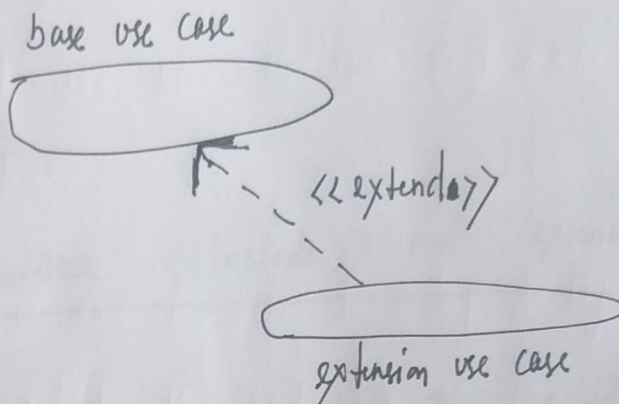 base use case
<<extend>>
extension use case